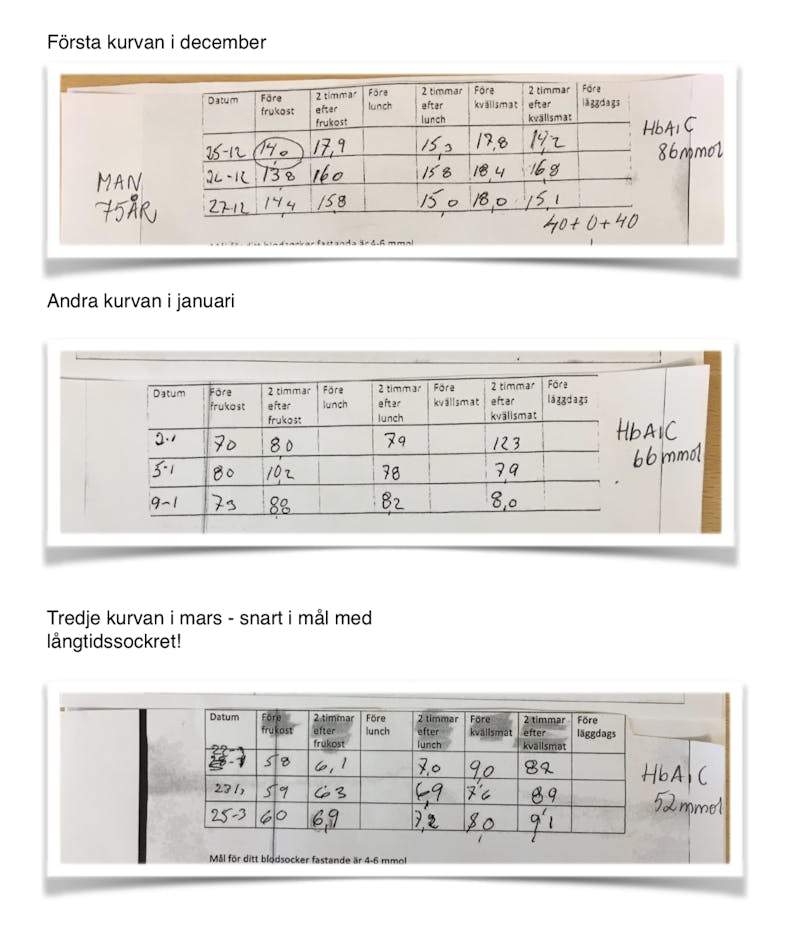 Första kurvan i december
Datum Före frukost 2 timmar efter frukost Före lunch 2 timmar efter lunch Före kvällsmat 2 timmar efter kvällsmat Före läggdags
HbA1C
86 mmol
25-12 14,0 17,9 15,3 17,8 14,2
26-12 138 160 158 18,4 16,8
27-12 14,4 158 15,0 18,0 15,1
MAN
75 ÅR
40+0+40
Mål för ditt blodsocker fastande är 4-6 mmol
Andra kurvan i januari
Datum Före frukost 2 timmar efter frukost Före lunch 2 timmar efter lunch Före kvällsmat 2 timmar efter kvällsmat Före läggdags
HbA1C
66 mmol
70 80 79 123
5-1 80 10,2 78 79
9-1 73 88 82 8,0
Tredje kurvan i mars - snart i mål med
långtidssockret!
Datum Före frukost 2 timmar efter frukost Före lunch 2 timmar efter lunch Före kvällsmat 2 timmar efter kvällsmat Före läggdags
58 6,1 7,0 90 82
59 63 6,9 7,6 89
25-3 60 6,9 7,2 8,0 9,1
HbA1C
52 mmol
Mål för ditt blodsocker fastande är 4-6 mmol